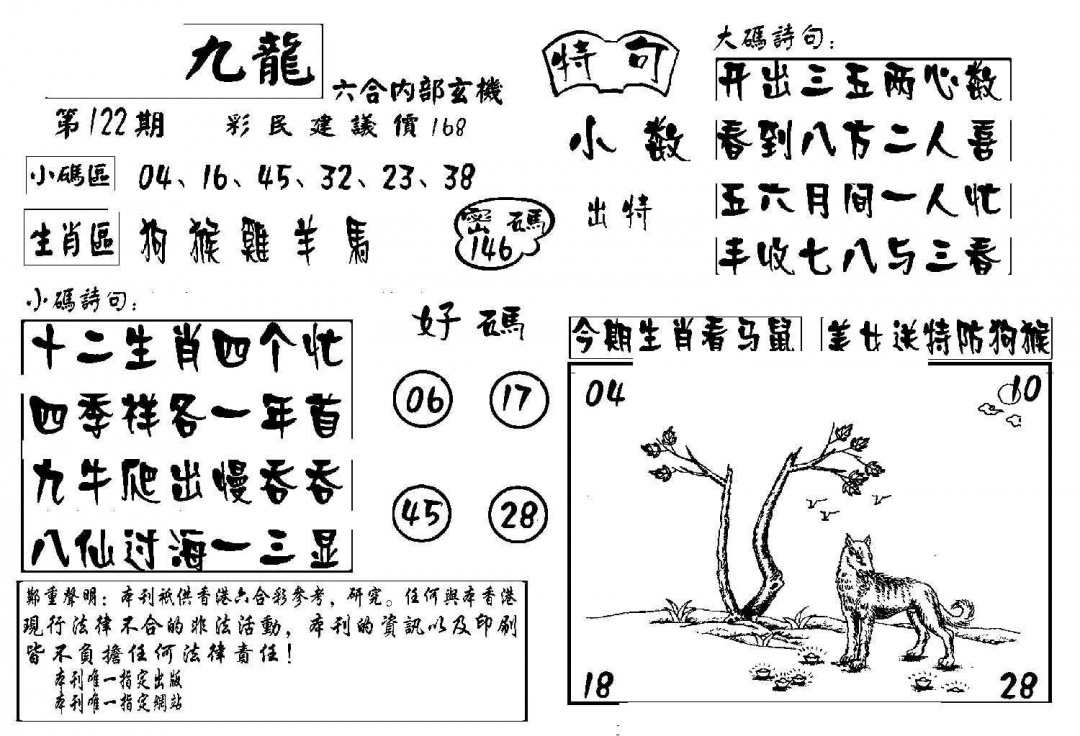 九龍
六合内部玄機
第122期
彩民建議價168
小碼區
04、16、45、32、23、38
生肖區
狗猴雞羊馬
密碼
146
特句
小数
出特
大碼詩句：
开出三五两心数
春到八方二人喜
五六月间一人忙
丰收七八与三春
小碼詩句：
十二生肖四个忙
四季祥各一年首
九牛爬出慢吞吞
八仙过海一三显
好碼
06
17
45
28
今期生肖看马鼠
美女送特防狗猴
04
10
18
28
鄭重聲明：本刊祇供香港六合彩參考，研究。任何與本香港
現行法律不合的非法活動，本刊的資訊以及印刷
皆不負擔任何法律責任！
本刊唯一指定出版
本刊唯一指定網站